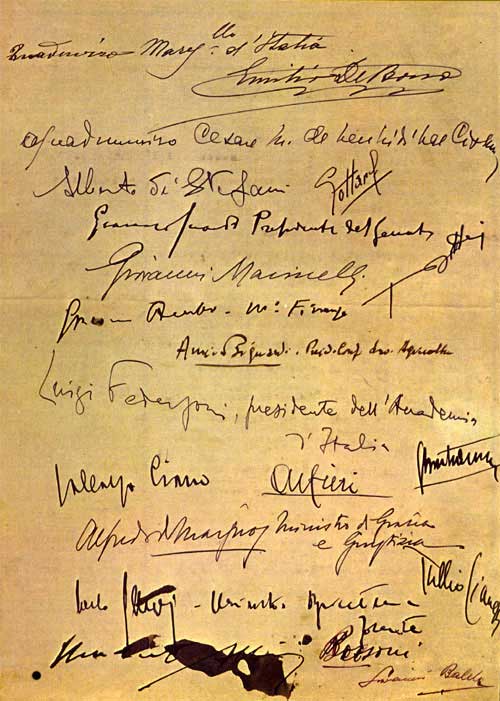 Quadrumviro Maresc.llo d'Italia
Emilio De Bono
Quadrumviro Cesare M. de Vecchi di Val Cismon
Alberto De Stefani Gottardi
Presidente del Senato
Giovanni Marinelli
Acerbo - M. Finanze
Annio Bignardi. Pres. Conf. Lav. Agricoltura
Luigi Federzoni, presidente dell'Accademia
d'Italia
Galeazzo Ciano Alfieri
Alfredo de Marsico Ministro di Grazia
e Giustizia
Tullio Cianetti
Carlo Pareschi - Ministro Agricoltura e
foreste
Balella